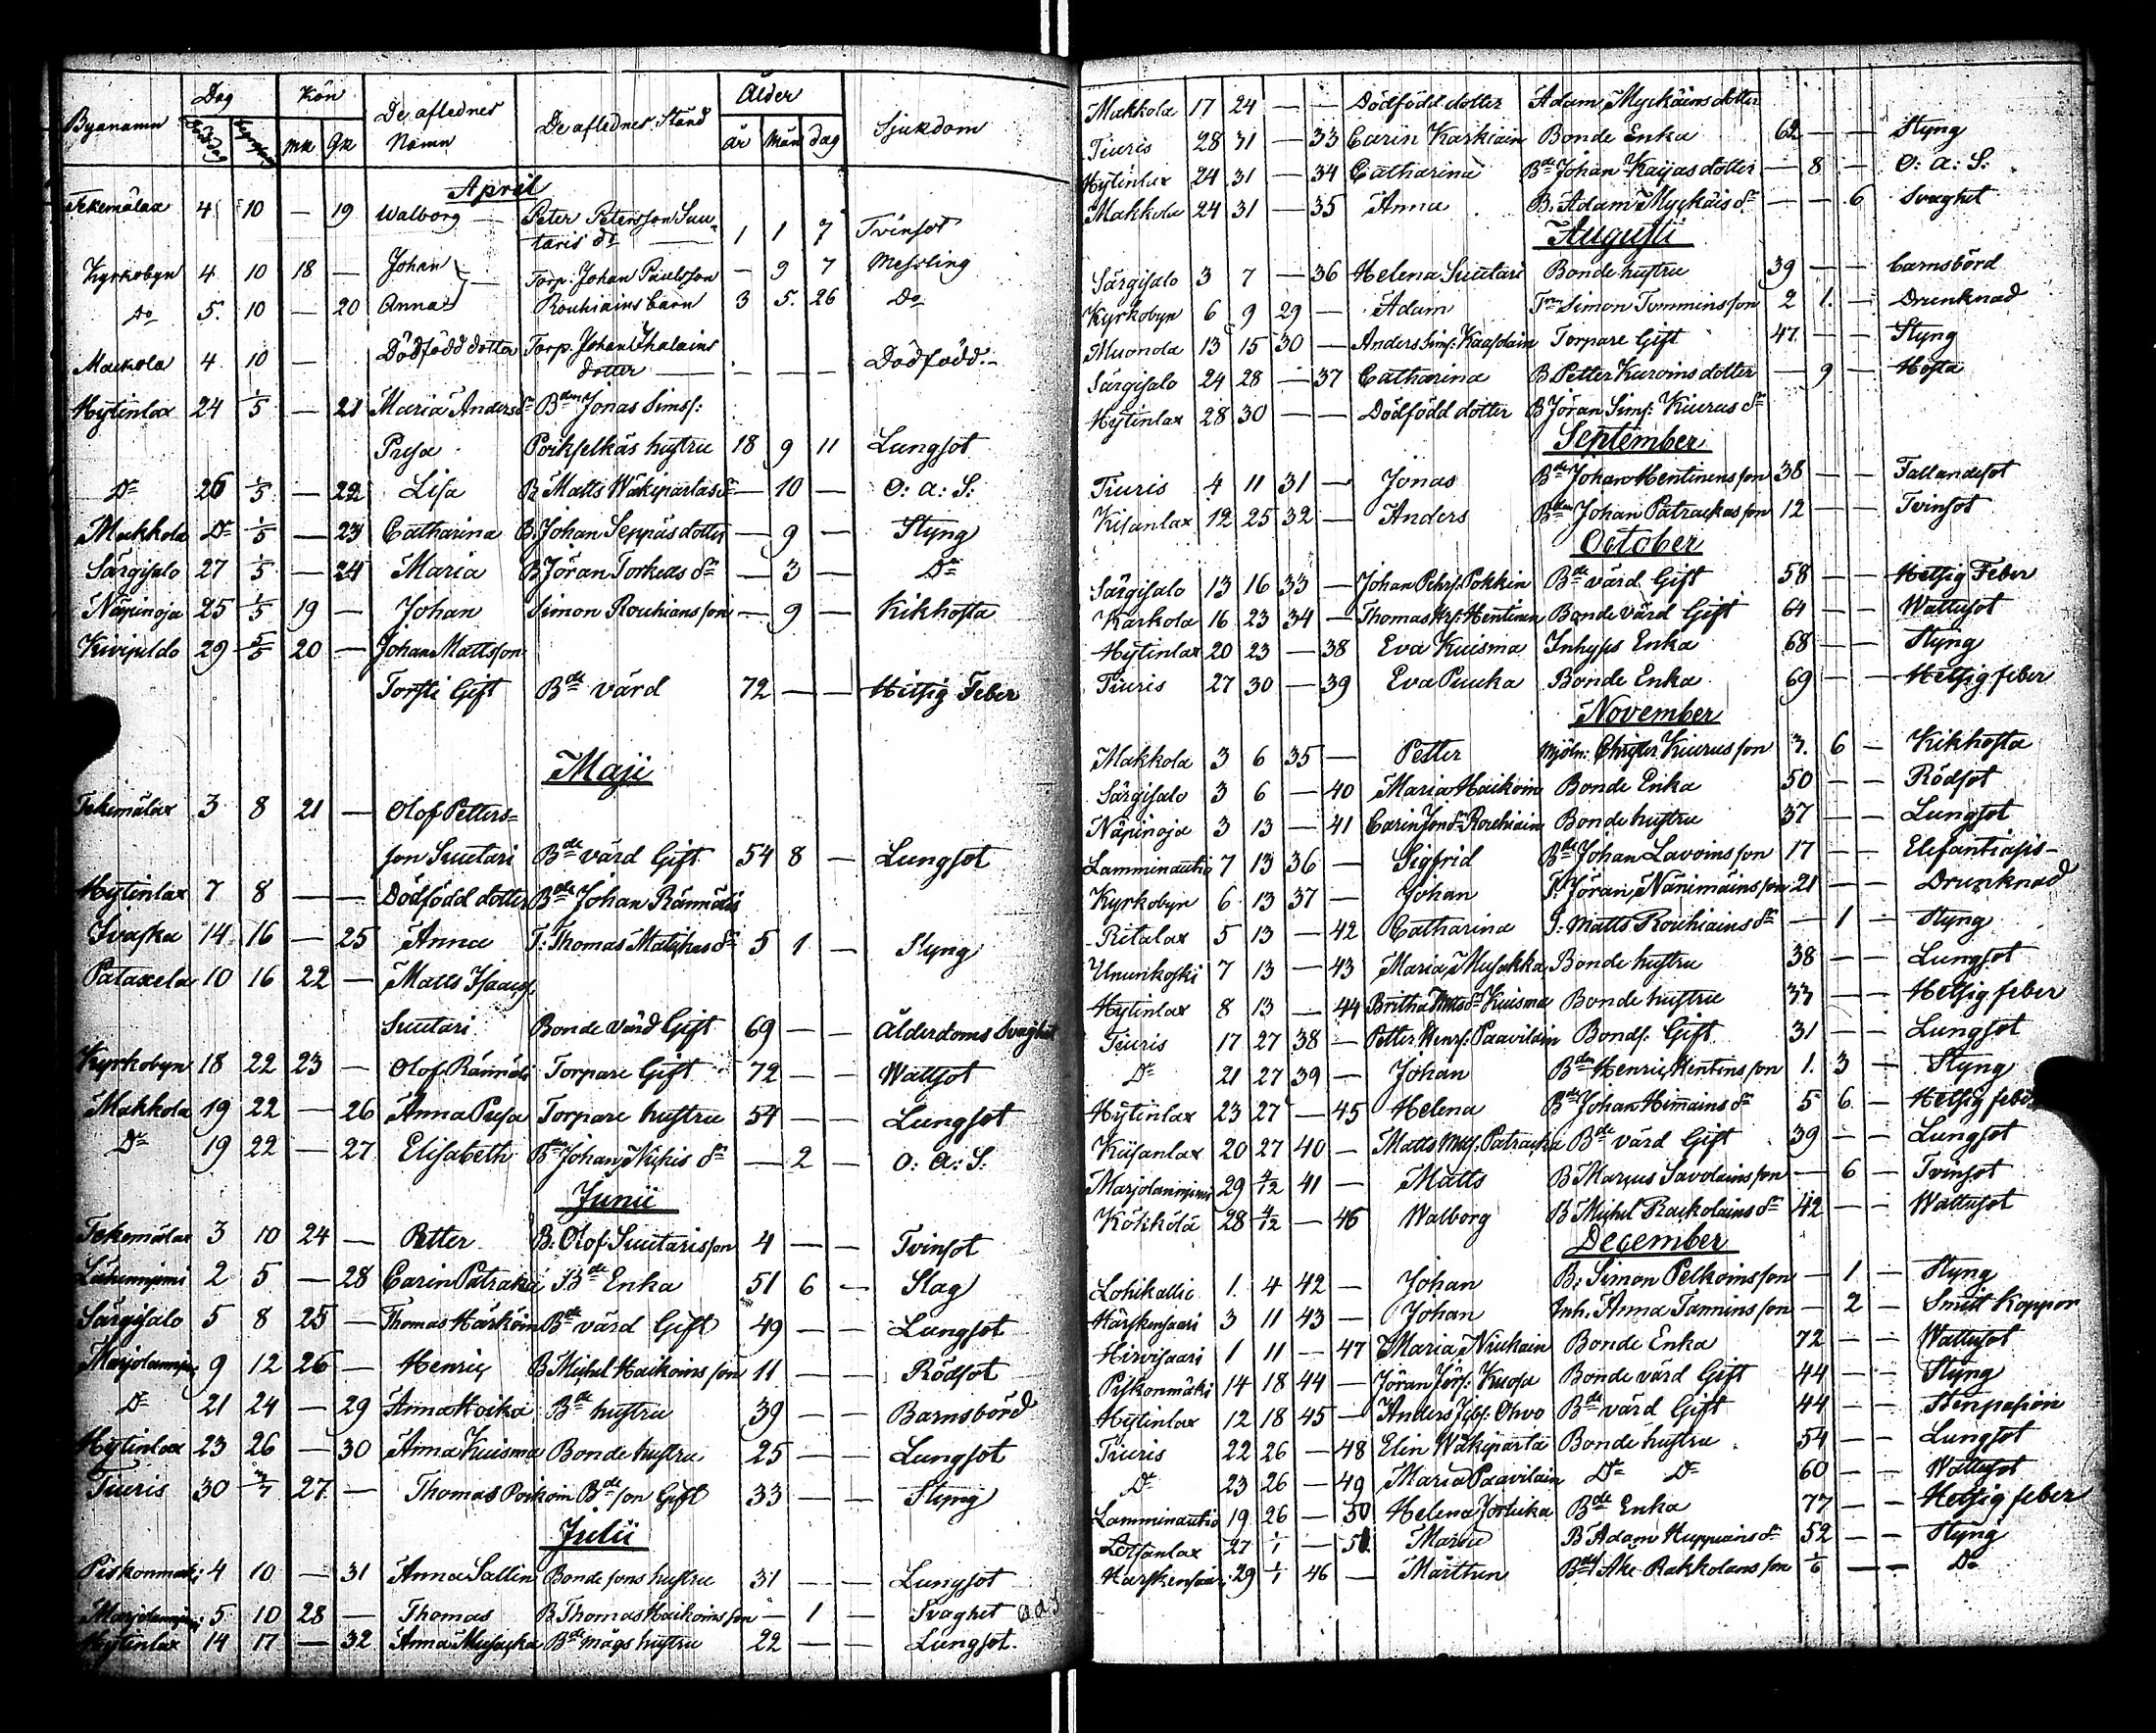 Dag Kön Ålder
Byanamn Död dag mk Qk De aflednes Namn De aflednes Stånd år Mån dag Sjukdom
April
Tekemälax 4 10 — 19 Walborg — Peter Petersson Suu-
taris dr — 1 1 7 Tvinsot
Kyrkobyn 4 10 18 — Johan Torp. Johan Paulsson — 9 7 Messling
Do 5. 10 — 20 Anna Rouhiains barn 3 5. 26 Do
Mackola 4 10 — Dödfödd dotter Torp. Johan Ihalains
dotter — — — Dödfödd.
Hytinlax 24 1/5 — 21 Maria Andersdr Bden Jonas Sims:
Pusa Poikselkäs hustru 18 9 11 Lungsot
Do 26 1/5 — 22 Lisa B Matts Wäkipartas dr — 10 — O: a: S:
Makkola Do 1/5 — 23 Catharina B. Johan Seppäs dotter — 9 — Styng
Särgisalo 27 1/5 — 24 Maria B Jöran Torkeas dr — 3 — Do
Näpinoja 25 1/5 19 — Johan Simon Rouhians son — 9 — Kikhosta
29 5/5 20 — Johan Mattsson
Torsti Gift Bde värd 72 — — Hitsig Feber
Maji
Tekemälax 3 8 21 — Olof Petters=
son Suutari Bde värd Gift 54 8 — Lungsot
Hytinlax 7 8 — — Dödfödd dotter Bde Johan Rännäli
Ivaska 14 16 — 25 Anna T: Thomas Matikas dr 5 1 — Styng
Pataxela 10 16 22 — Matts Isaacs.
Suutari Bonde värd Gift 69 — — Ålderdoms Svaghet
Kyrkobyn 18 22 23 — Olof Rännäli Torpare Gift 72 — — Wattsot
Makkola 19 22 — 26 Anna Pusa Torpare hustru 54 — — Lungsot
Do 19 22 — 27 Elisabeth Bde Johan Nickis dr — 2 — O: a: S:
Junii
Tekemälax 3 10 24 — Petter B: Olof Suutaris son 4 — — Tvinsot
2 5 — 28 Carin Patraka Bde Enka 51 6 — Slag
Särgisalo 5 8 25 — Thomas Härköin Bde värd Gift 49 — — Lungsot
Marjolanniemi 9 12 26 — Henric B Michel Haikoins son 11 — — Rödsot
Do 21 24 — 29 Anna Hoika Bde hustru 39 — — Barnsbörd
Hytinlax 23 26 — 30 Anna Kuisma Bonde hustru 25 — — Lungsot
Tiuris 30 3/7 27 — Thomas Poikoin Bde son Gift 33 — — Styng
Julii
Piskonmäki 4 10 — 31 Anna Sallin Bonde sons hustru 31 — — Lungsot
Marjolanniemi 5 10 28 — Thomas B Thomas Haikoins son — 1 — Svaghet
Hytinlax 14 17 — 32 Anna Musacka Bde mågs hustru 22 — — Lungsot.
Makkola 17 24 — — Dödfödd dotter Adam Myckäins dotter
Tiuris 28 31 — 33 Carin Karkiain Bonde Enka 62 — — Styng
Hytinlax 24 31 — 34 Catharina Bde Johan Kaijas dotter — 8 — O: a: S:
Makkola 24 31 — 35 Anna B. Adam Myckäis dr — — 6 Svaghet
Augusti
Särgisalo 3 7 — 36 Helena Suutari Bonde hustru 39 — — barnsbörd
Kyrkobyn 6 9 29 — Adam Simon Tommins son 2 1. — Drunknad
Muonola 13 15 30 — Anders Sims: Kaasolain Torpare Gift 47. — — Styng
Särgisalo 24 28 — 37 Catharina B Petter Kuroins dotter — 9 — Hosta
Hytinlax 28 30 — — Dödfödd dotter B Jöran Sims: Kiurus dr
September
Tiuris 4 11 31 — Jonas Bde Johan Hentinens son 38 — — Fallandesot
Kisanlax 12 25 32 — Anders Bden Johan Patrackas son 12 — — Tvinsot
October
Särgisalo 13 16 33 — Johan Pehrs. Pokkin Bde värd Gift 58 — — Hetsig Feber
Karkola 16 23 34 — Thomas Hentinen Bonde värd Gift 64 — — Wattusot
Hytinlax 20 23 — 38 Eva Kuisma Inhyses Enka 68 — — Styng
Tiuris 27 30 — 39 Eva Puuka Bonde Enka 69 — — Hetsig feber
November
Makkola 3 6 35 — Petter Mjöln: Christer Kiurus son 3. 6 — Kikhosta
Särgisalo 3 6 — 40 Maria Haikoin Bonde Enka 50 — — Rödsot
Näpinoja 3 13 — 41 Carin Jonsdr Rouhiain Bonde hustru 37 — — Lungsot
Lamminautio 7 13 36 — Sigfrid Bde Johan Lavoins son 17 — — Elefantiasis
Kyrkobyn 6 13 37 — Johan Jöran Nänimäins son 21 — — Drunknad
Ritalax 5 13 — 42 Catharina T. Matts Rouhiains dr — 1 — Styng
Ununkoski 7 13 — 43 Maria Musakka Bonde hustru 38 — — Lungsot
Hytinlax 8 13 — 44 Britha Kuisma Bonde hustru 33 — — Hetsig feber
Tiuris 17 27 38 — Petter Henrs: Paavilain Bonds. Gift 31 — — Lungsot
Do 21 27 39 — Johan Bde Henric Hentins son 1. 3 — Styng
Hytinlax 23 27 — 45 Helena Bde Johan Himains dr 5 6 — Hetsig feber
Kiisanlax 20 27 40 — Matts Matts: Patracka Bde värd Gift 39 — — Lungsot
Marjolanniemi 29 4/12 41 — Matts B Marcus Savolains son — 6 — Tvinsot
Kökkölä 28 4/12 — 46 Walborg B Michel Rackolains dr 42 — — Wattusot
December
Lohikallio 1. 4 42 — Johan B: Simon Pelkoins son — 1 — Styng
Härskensaari 3 11 43 — Johan Inh. Anna Tannins son — 2 — Smitt Koppor
Hirvisaari 1 11 — 47 Maria Niukain Bonde Enka 72 — — Wattusot
Piskonmäki 14 18 44 — Jöran Jörs: Kuosa Bonde värd Gift 44 — — Styng
Hytinlax 12 18 45 — Anders Ohvo Bde värd Gift 44 — — Stenpasion
Tiuris 22 26 — 48 Elin Wäkiparta Bonde hustru 54 — — Lungsot
Do 23 26 — 49 Maria Paavilain Do Do 60 — — Wattusot
Lamminautio 19 26 — 50 Helena Jortikka Bde Enka 77 — — Hetsig feber
27 1/1 — 51 Maria B Adam Huppians dr 52 — — Styng
Härskensaari 29 1/1 46 — Märthen Rakkolans son 1/6 — — Do